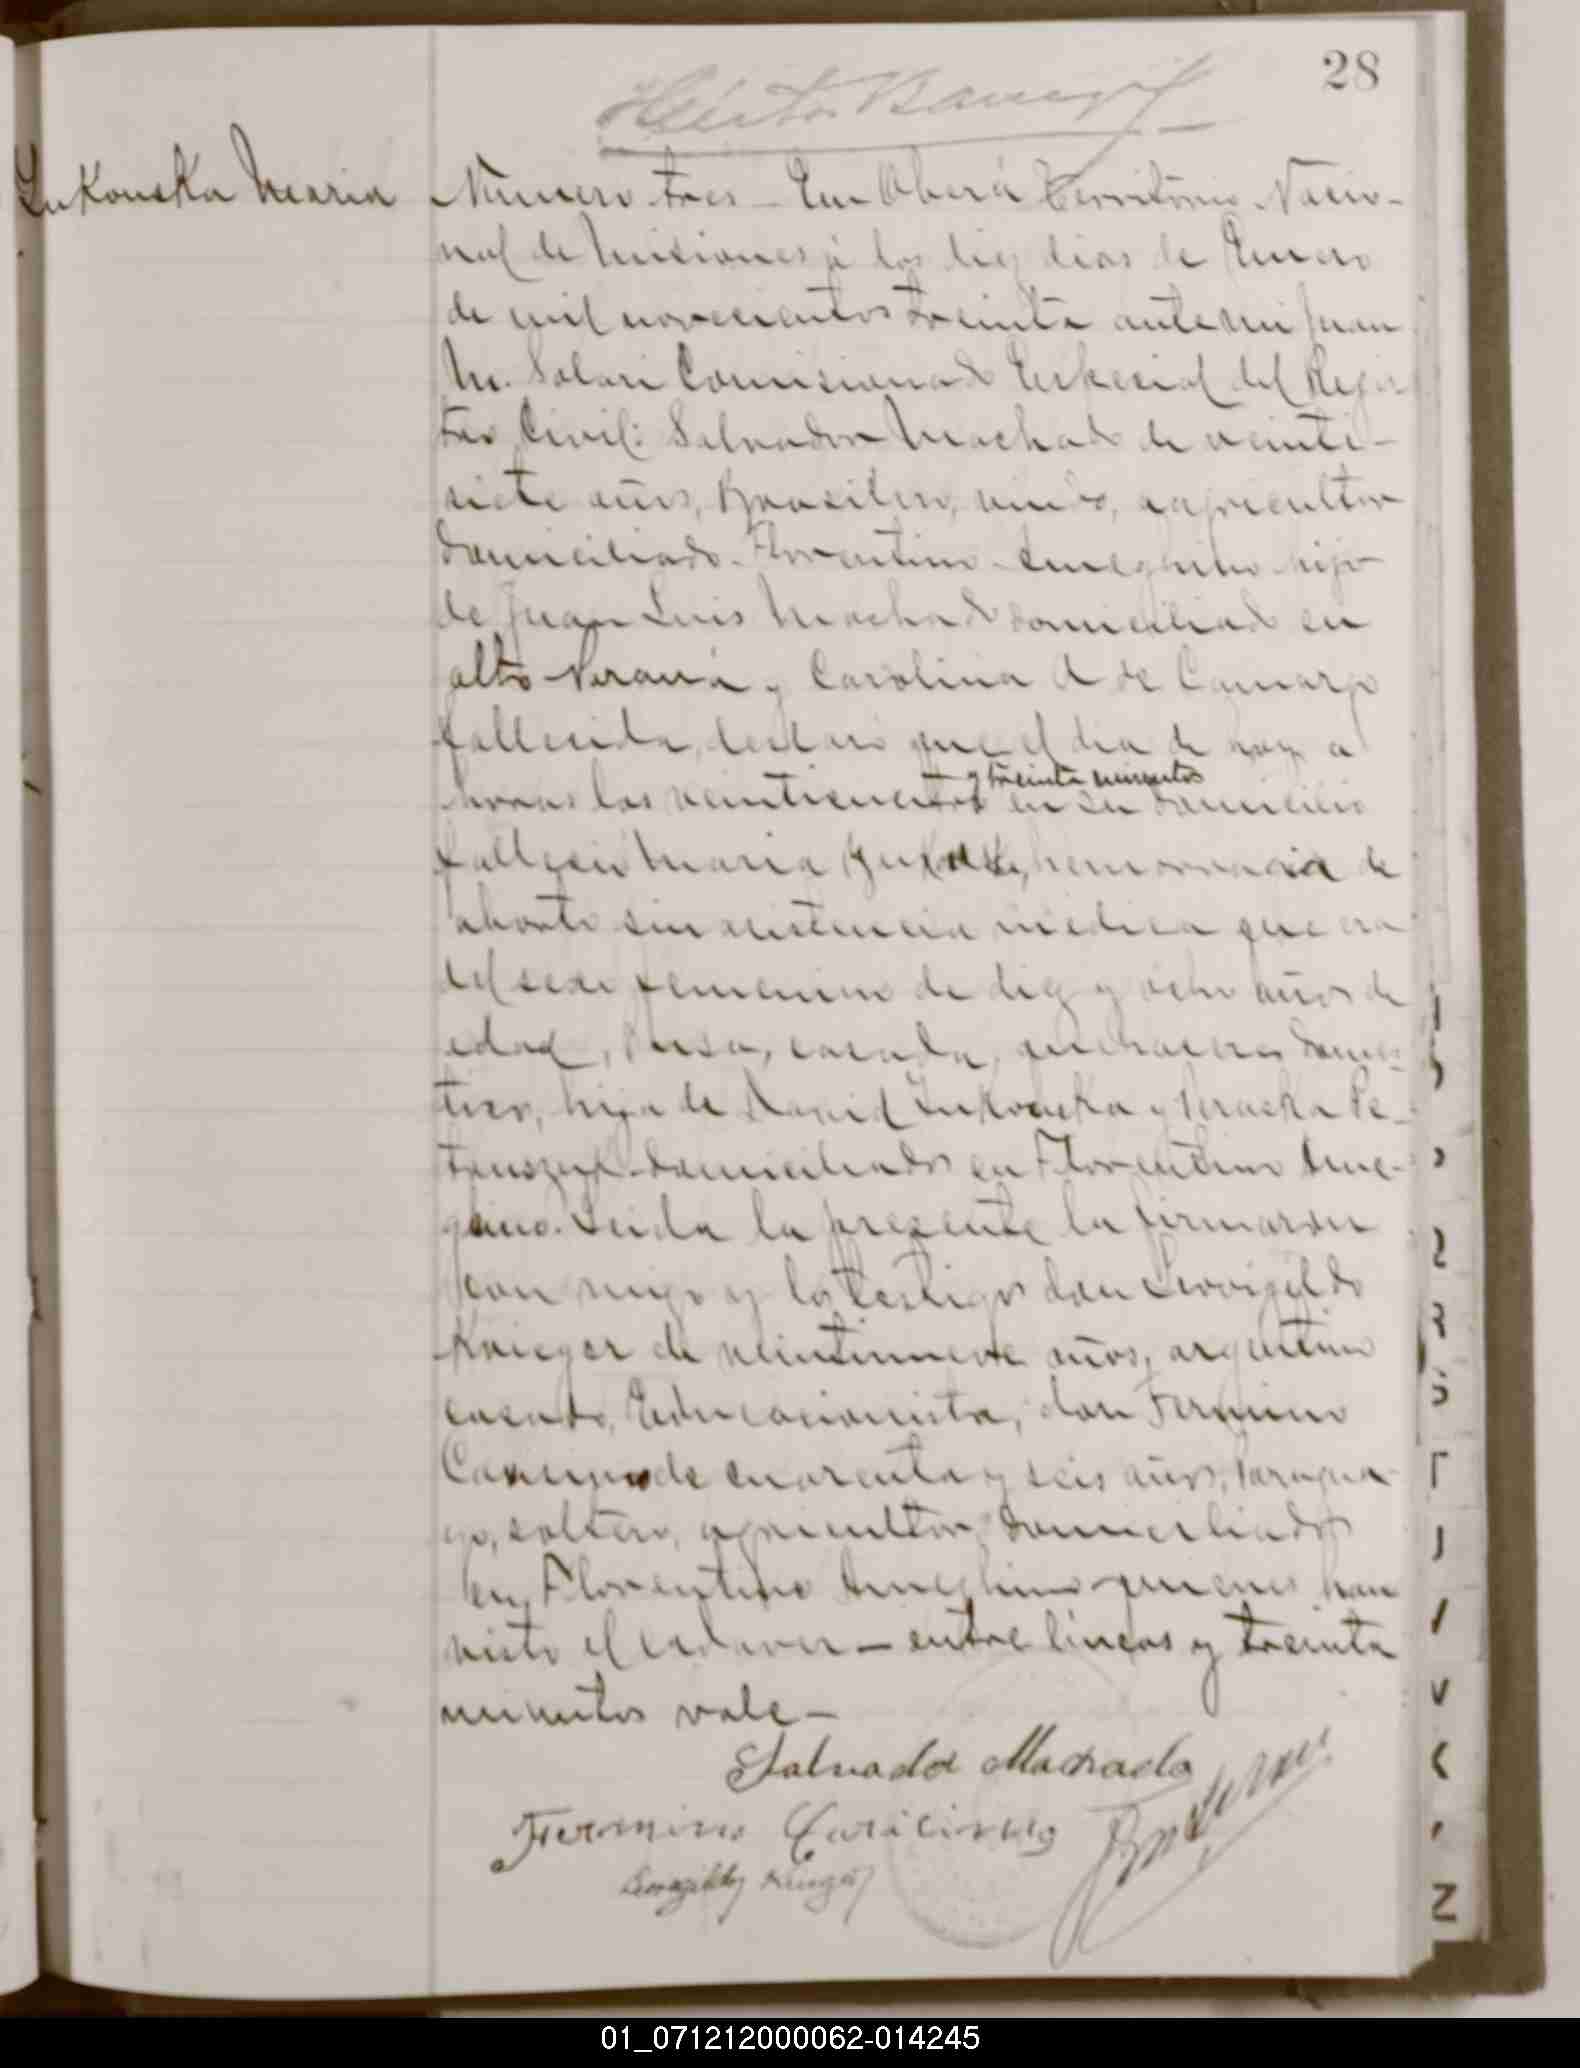 28
Lukouska Maria
Número tres - En Oberá Territorio Nacio-
nal de Misiones á los diez dias de Enero
de mil novecientos treinta ante mi Juan
M. Solari Comisionado Especial del Regis-
tro Civil: Salvador Machado de veinti-
siete años, Brasilero, viudo, agricultor
domiciliado Florentino Ameghino hijo
de Juan Luis Machado domiciliado en
alto Paraná y Carolina A de Camargo
fallecida, declaró que el dia de hoy a
y treinta minutos
horas las veinticuatro en su domicilio
falleció Maria hemorragia de
aborto sin asistencia médica que era
del sexo femenino de diez y ocho años de
edad, Rusa, casada, quehaceres domes-
ticos, hija de David Lukouska y Pe-
domiciliados en Florentino Ame-
gino. Leida la presente la firmaron
con migo y los testigos don Leovigildo
Krieger de veintinueve años, argentino
casado, Educacionista, don Fermino
de cuarenta y seis años, Paragua-
yo, soltero, agricultor, domiciliados
en Florentino Ameghino quienes han
visto el cadaver - entre lineas y treinta
minutos vale -
Salvador Machado
Fermino
01_071212000062-014245